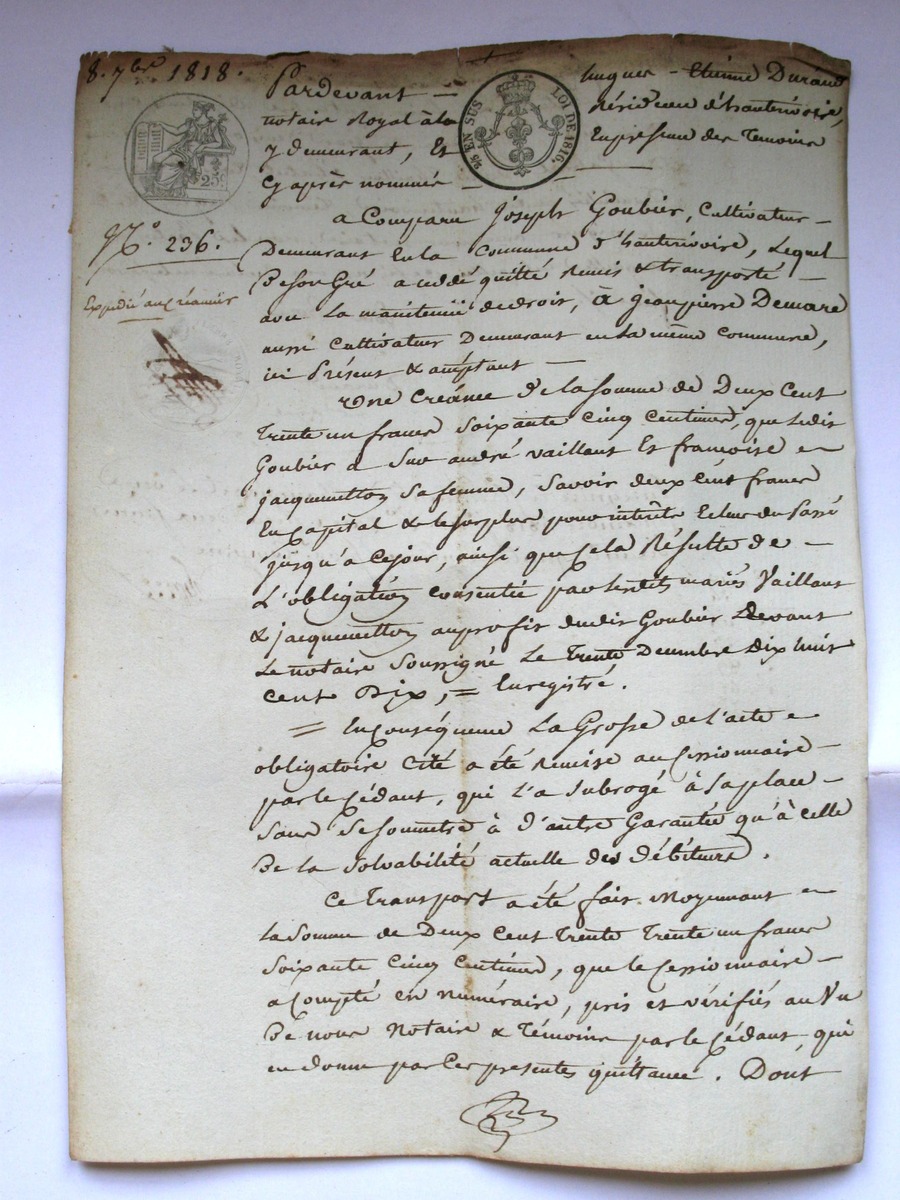 8. 7bre 1818.
Pardevant — hugues - Etienne Durand
notaire Royal à la résidence d'hauterivoire,
y demeurant, Et En présence des Temoins
cy après nommés —
25 EN SUS LOI DE 1816.
25
N.o 236.
Expédié au créancier
a Comparu Joseph Goubier, Cultivateur —
Demeurant En la Commune d'hauterivoire, Lequel
De son Gré a cédé quitté remis & transporté —
avec La maintenüe de droit, à jean pierre Demare
aussi Cultivateur Demeurant en La même Commune,
ici Présent & acceptant —
Une Créance de la Somme de Deux Cent
Trente un francs Soixante Cinq Centimes, que Ledit
Goubier a Sur andré Vaillant Et françoise
jacquemetton Sa femme, Savoir deux Cent francs
En Capital & le surplus pour interêts du Passé
jusqu'a Ce jour, ainsi que Cela Résulte de —
L'obligation consentie par Lesdits mariés Vaillant
& jacquemetton au profit dudit Goubier Devant
Le notaire Soussigné Le Trente Decembre Dix huit
Cent Dix, = Enregistré.
= En Conséquence La Grosse de l'acte
obligatoire Cité a été Remise au Cessionnaire —
par le Cédant, qui L'a Subrogé à Sa place —
Sans Se Soumettre à d'autre Garantie qu'à Celle
De la Solvabilité actuelle des Débiteurs.
Ce Transport a été fait Moyennant
La Somme de Deux Cent Trente Trente un francs
Soixante Cinq Centimes, que le Cessionnaire —
a Compté en numéraire, pris et vérifiés au Vu
De nous Notaire & Témoins par le Cédant, qui
en donne par Ces presentes quittance. Dont